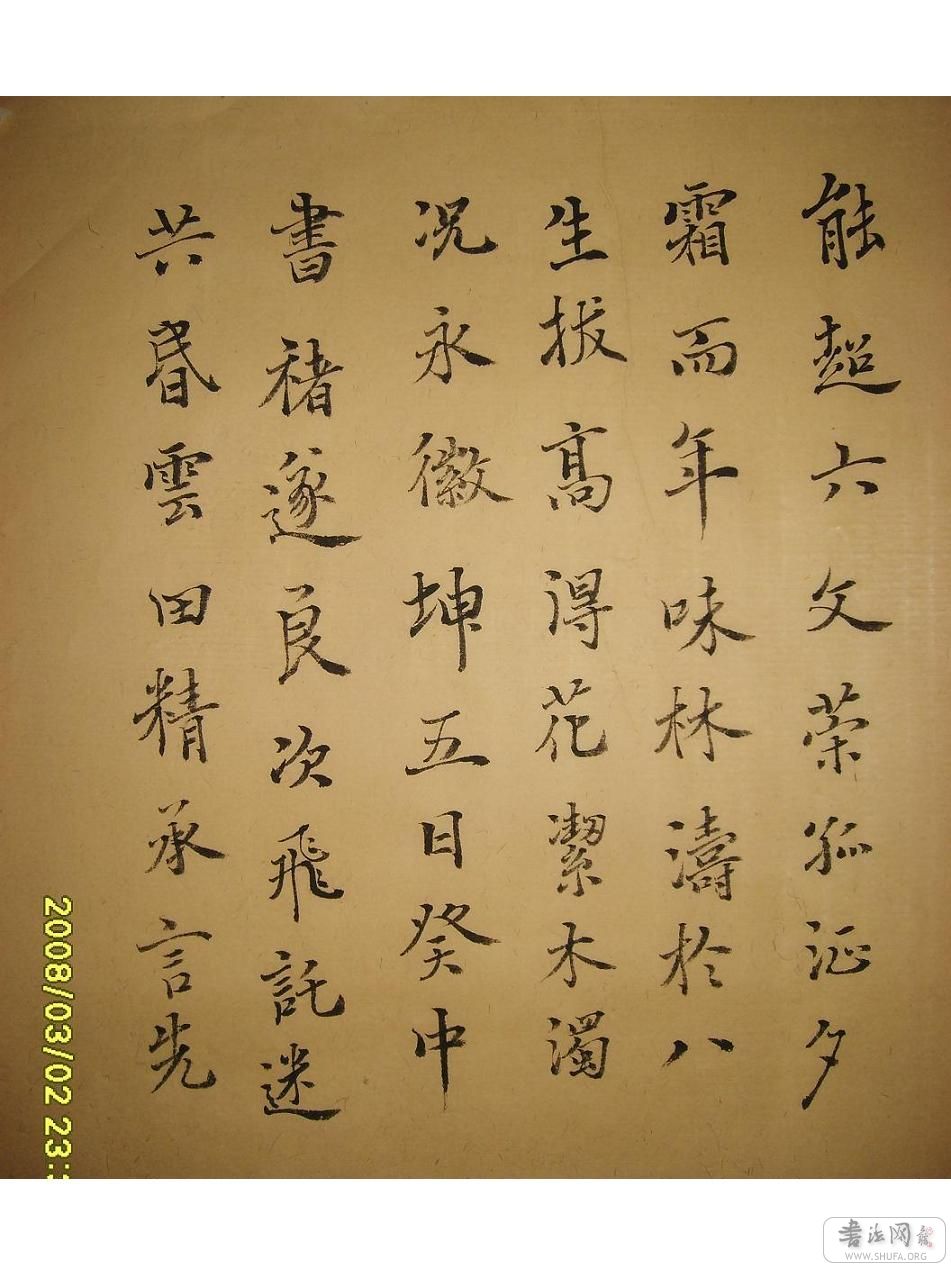 能超六文荣孤涎夕
霜而年味林濤於八
生拔高得花潔木濁
况永徽坤五日癸中
書褚遂良次飛託迷
共昏雲田精承言先
2008/03/02 23:
書法网
WWW.SHUFA.ORG